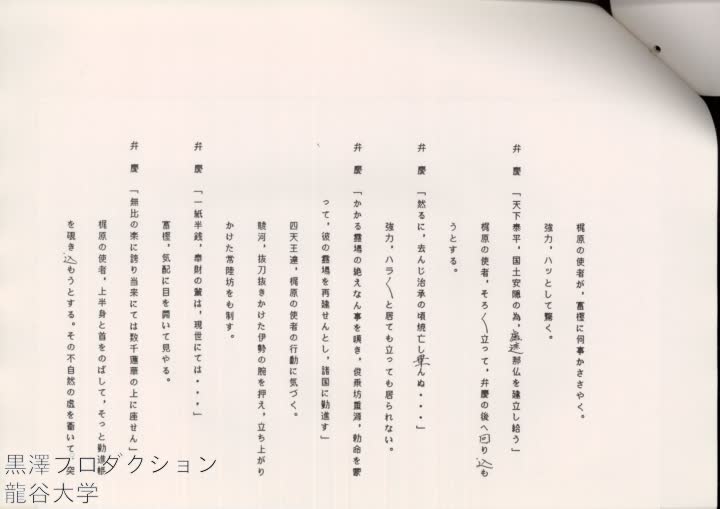 梶原の使者が、富樫に何事かささやく。
強力、ハッとして驚く。
弁慶「天下泰平、国土安隠の為、盧遮那仏を建立し給う」
梶原の使者、そろ〱立って、弁慶の後へ回り込も
うとする。
弁慶「然るに、去んじ治承の頃焼亡し畢んぬ・・・」
強力、ハラ〱と居ても立っても居られない。
弁慶「かかる霊場の絶えなん事を嘆き、俊乗坊重源、勅命を蒙
って、彼の霊場を再建せんとし、諸国に勧進す」
四天王達、梶原の使者の行動に気づく。
駿河、抜刀抜きかけた伊勢の腕を押え、立ち上がり
かけた常陸坊をも制す。
弁慶「一紙半銭、奉財の輩は、現世にては・・・」
富樫、気配に目を開いて見やる。
弁慶「無比の楽に誇り当来にては数千蓮華の上に座せん」
梶原の使者、上半身と首をのばして、そっと勧進帳
を覗き込もうとする。その不自然の虚を蓄いて、突
黒澤プロダクション
龍谷大学